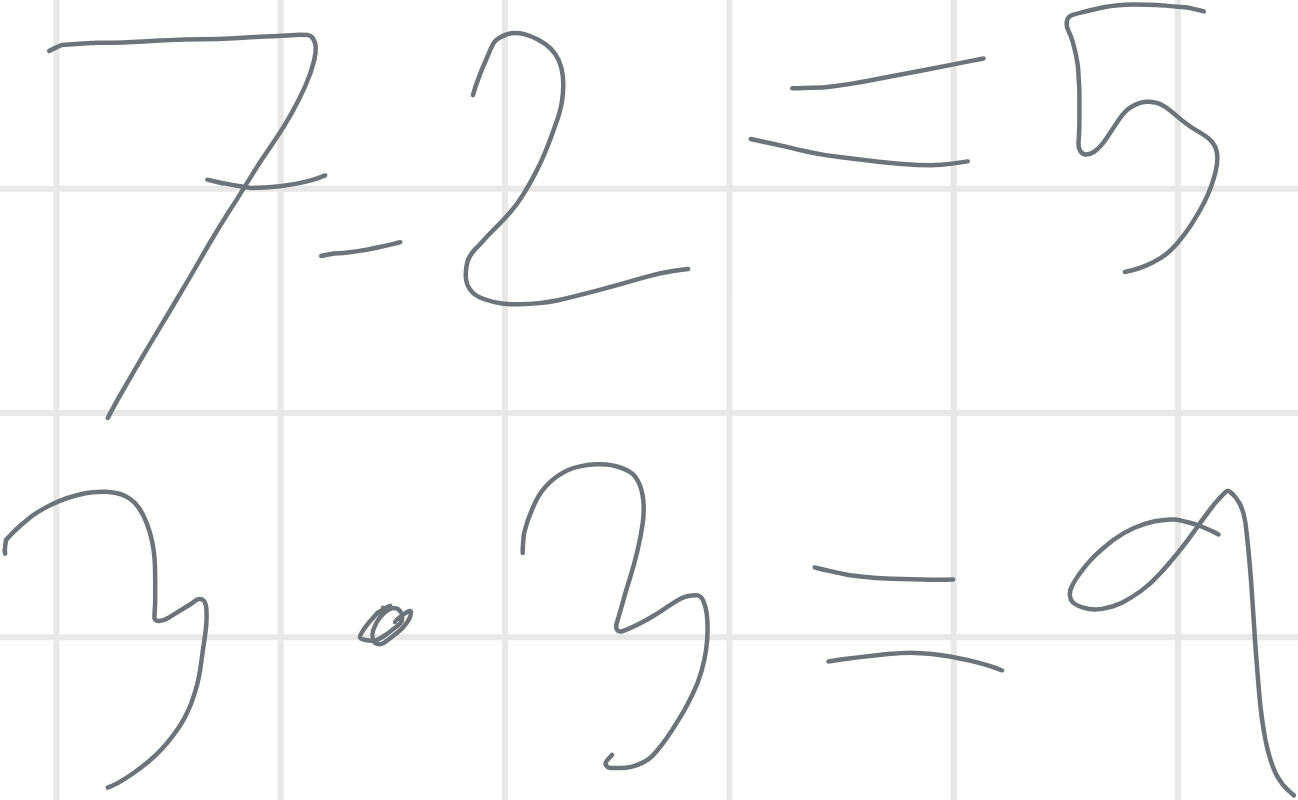 7 - 2 = 5
3 · 3 = 9